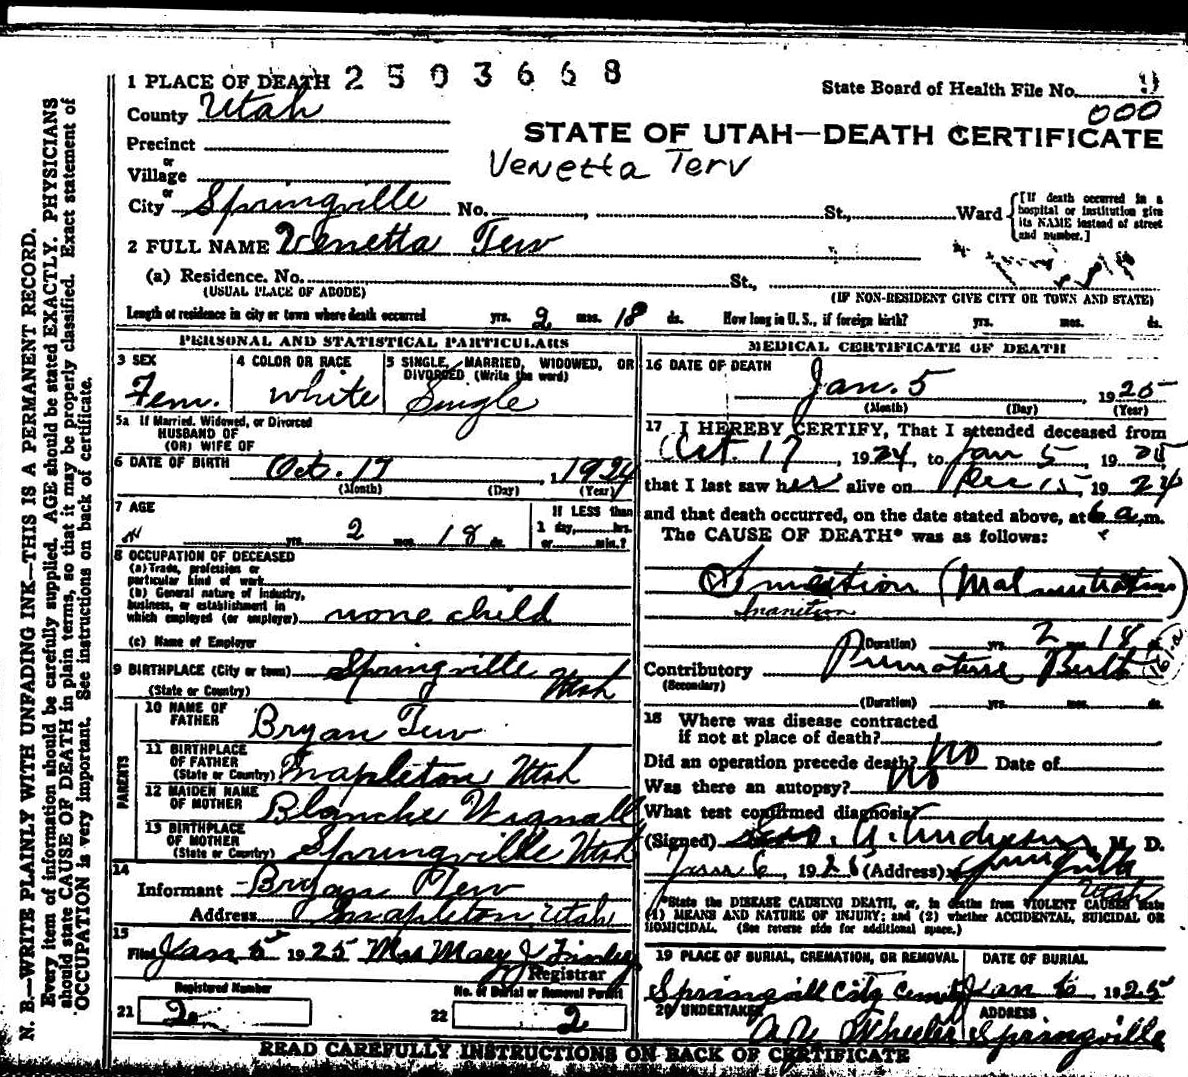 N. B.—WRITE PLAINLY WITH UNFADING INK—THIS IS A PERMANENT RECORD.
Every item of information should be carefully supplied. AGE should be stated EXACTLY. PHYSICIANS
should state CAUSE OF DEATH in plain terms, so that it may be properly classified. Exact statement of
OCCUPATION is very important. See instructions on back of certificate.
1 PLACE OF DEATH 2503668
State Board of Health File No. 9
000
County Utah
STATE OF UTAH—DEATH CERTIFICATE
Precinct
Venetta Terv
or
Village
or
City Springville No. , St., Ward
[If death occurred in a
hospital or institution give
its NAME instead of street
and number.]
2 FULL NAME Venetta Tew
(a) Residence. No. St.,
(USUAL PLACE OF ABODE)
(IF NON-RESIDENT GIVE CITY OR TOWN AND STATE)
Length of residence in city or town where death occurred yrs. 2 mos. 18 ds. How long in U. S., if foreign birth? yrs. mos. ds.
PERSONAL AND STATISTICAL PARTICULARS
3 SEX
Fem.
4 COLOR OR RACE
white
5 SINGLE, MARRIED, WIDOWED, OR
DIVORCED (Write the word)
Single
5a If Married, Widowed, or Divorced
HUSBAND OF
(OR) WIFE OF
6 DATE OF BIRTH Oct. 17, 1924
(Month) (Day) (Year)
7 AGE
yrs. 2 mos. 18 ds.
If LESS than
1 day, hrs.
or min.?
8 OCCUPATION OF DECEASED
(a) Trade, profession or
particular kind of work
(b) General nature of industry,
business, or establishment in
which employed (or employer) none child
(c) Name of Employer
9 BIRTHPLACE (City or town) Springville Utah
(State or Country)
PARENTS
10 NAME OF
FATHER Bryan Tew
11 BIRTHPLACE
OF FATHER
(State or Country) Mapleton Utah
12 MAIDEN NAME
OF MOTHER Blanche Wignall
13 BIRTHPLACE
OF MOTHER
(State or Country) Springville Utah
14
Informant Bryan Tew
Address Mapleton, Utah
15
Filed Jan 5 1925 Mrs Mary J
Registrar
Registered Number
No. of Burial or Removal Permit
21 2
22 2
MEDICAL CERTIFICATE OF DEATH
16 DATE OF DEATH
Jan. 5, 1925
(Month) (Day) (Year)
17 I HEREBY CERTIFY, That I attended deceased from
Oct. 17, 1924, to Jan 5, 1925
that I last saw her alive on Dec 15, 1924
and that death occurred, on the date stated above, at 6 a.m.
The CAUSE OF DEATH* was as follows:
Inanition (Malnutrition)
Inanition
(Duration) yrs. 2 mos. 18 ds.
Contributory Premature Birth
(Secondary)
161-a
(Duration) yrs. mos. ds.
18 Where was disease contracted
if not at place of death?
Did an operation precede death? No Date of
Was there an autopsy? No
What test confirmed diagnosis?
(Signed) Geo. A. Anderson, M. D.
Jan 6, 1925 (Address) Springville
Utah
*State the DISEASE CAUSING DEATH, or, in deaths from VIOLENT CAUSES state
(1) MEANS AND NATURE OF INJURY; and (2) whether ACCIDENTAL, SUICIDAL OR
HOMICIDAL. (See reverse side for additional space.)
19 PLACE OF BURIAL, CREMATION, OR REMOVAL
Springvill City Cemetery
DATE OF BURIAL
Jan 6 1925
20 UNDERTAKER
A. Y. Wheeler
ADDRESS
Springville
READ CAREFULLY INSTRUCTIONS ON BACK OF CERTIFICATE